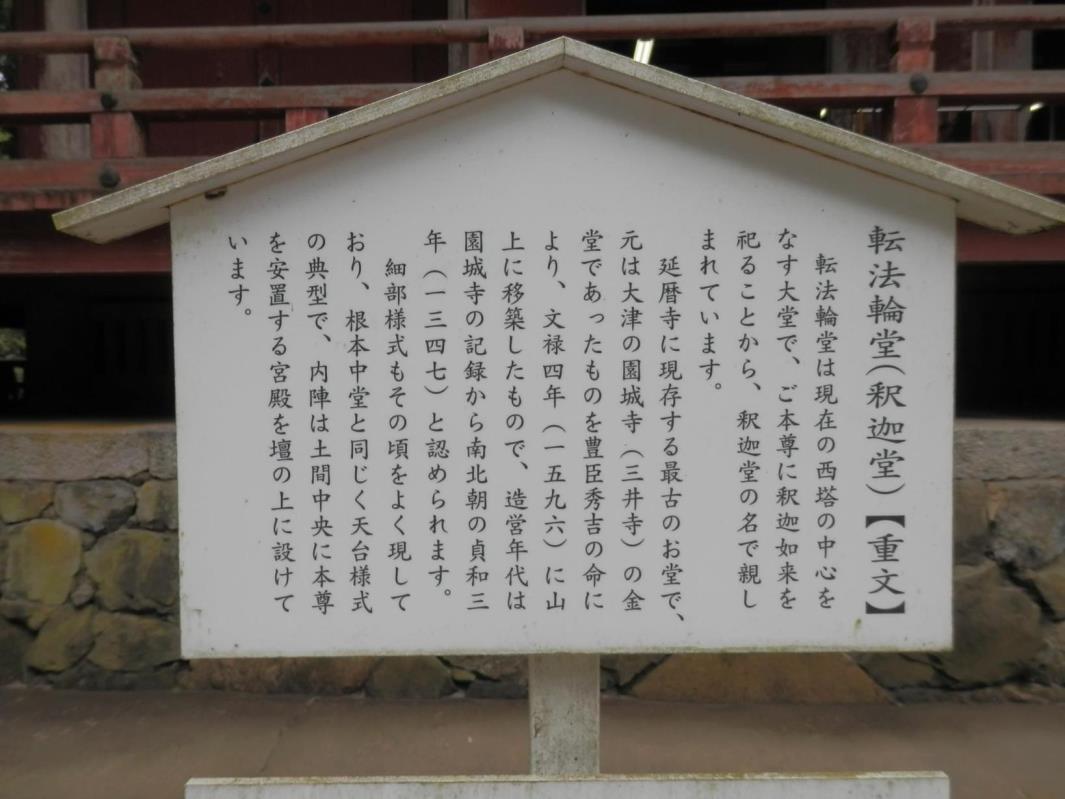 転法輪堂(釈迦堂)【重文】
転法輪堂は現在の西塔の中心を
なす大堂で、ご本尊に釈迦如来を
祀ることから、釈迦堂の名で親し
まれています。
延暦寺に現存する最古のお堂で、
元は大津の園城寺(三井寺)の金
堂であったものを豊臣秀吉の命に
より、文禄四年(一五九六)に山
上に移築したもので、造営年代は
園城寺の記録から南北朝の貞和三
年(一三四七)と認められます。
細部様式もその頃をよく現して
おり、根本中堂と同じく天台様式
の典型で、内陣は土間中央に本尊
を安置する宮殿を壇の上に設けて
います。